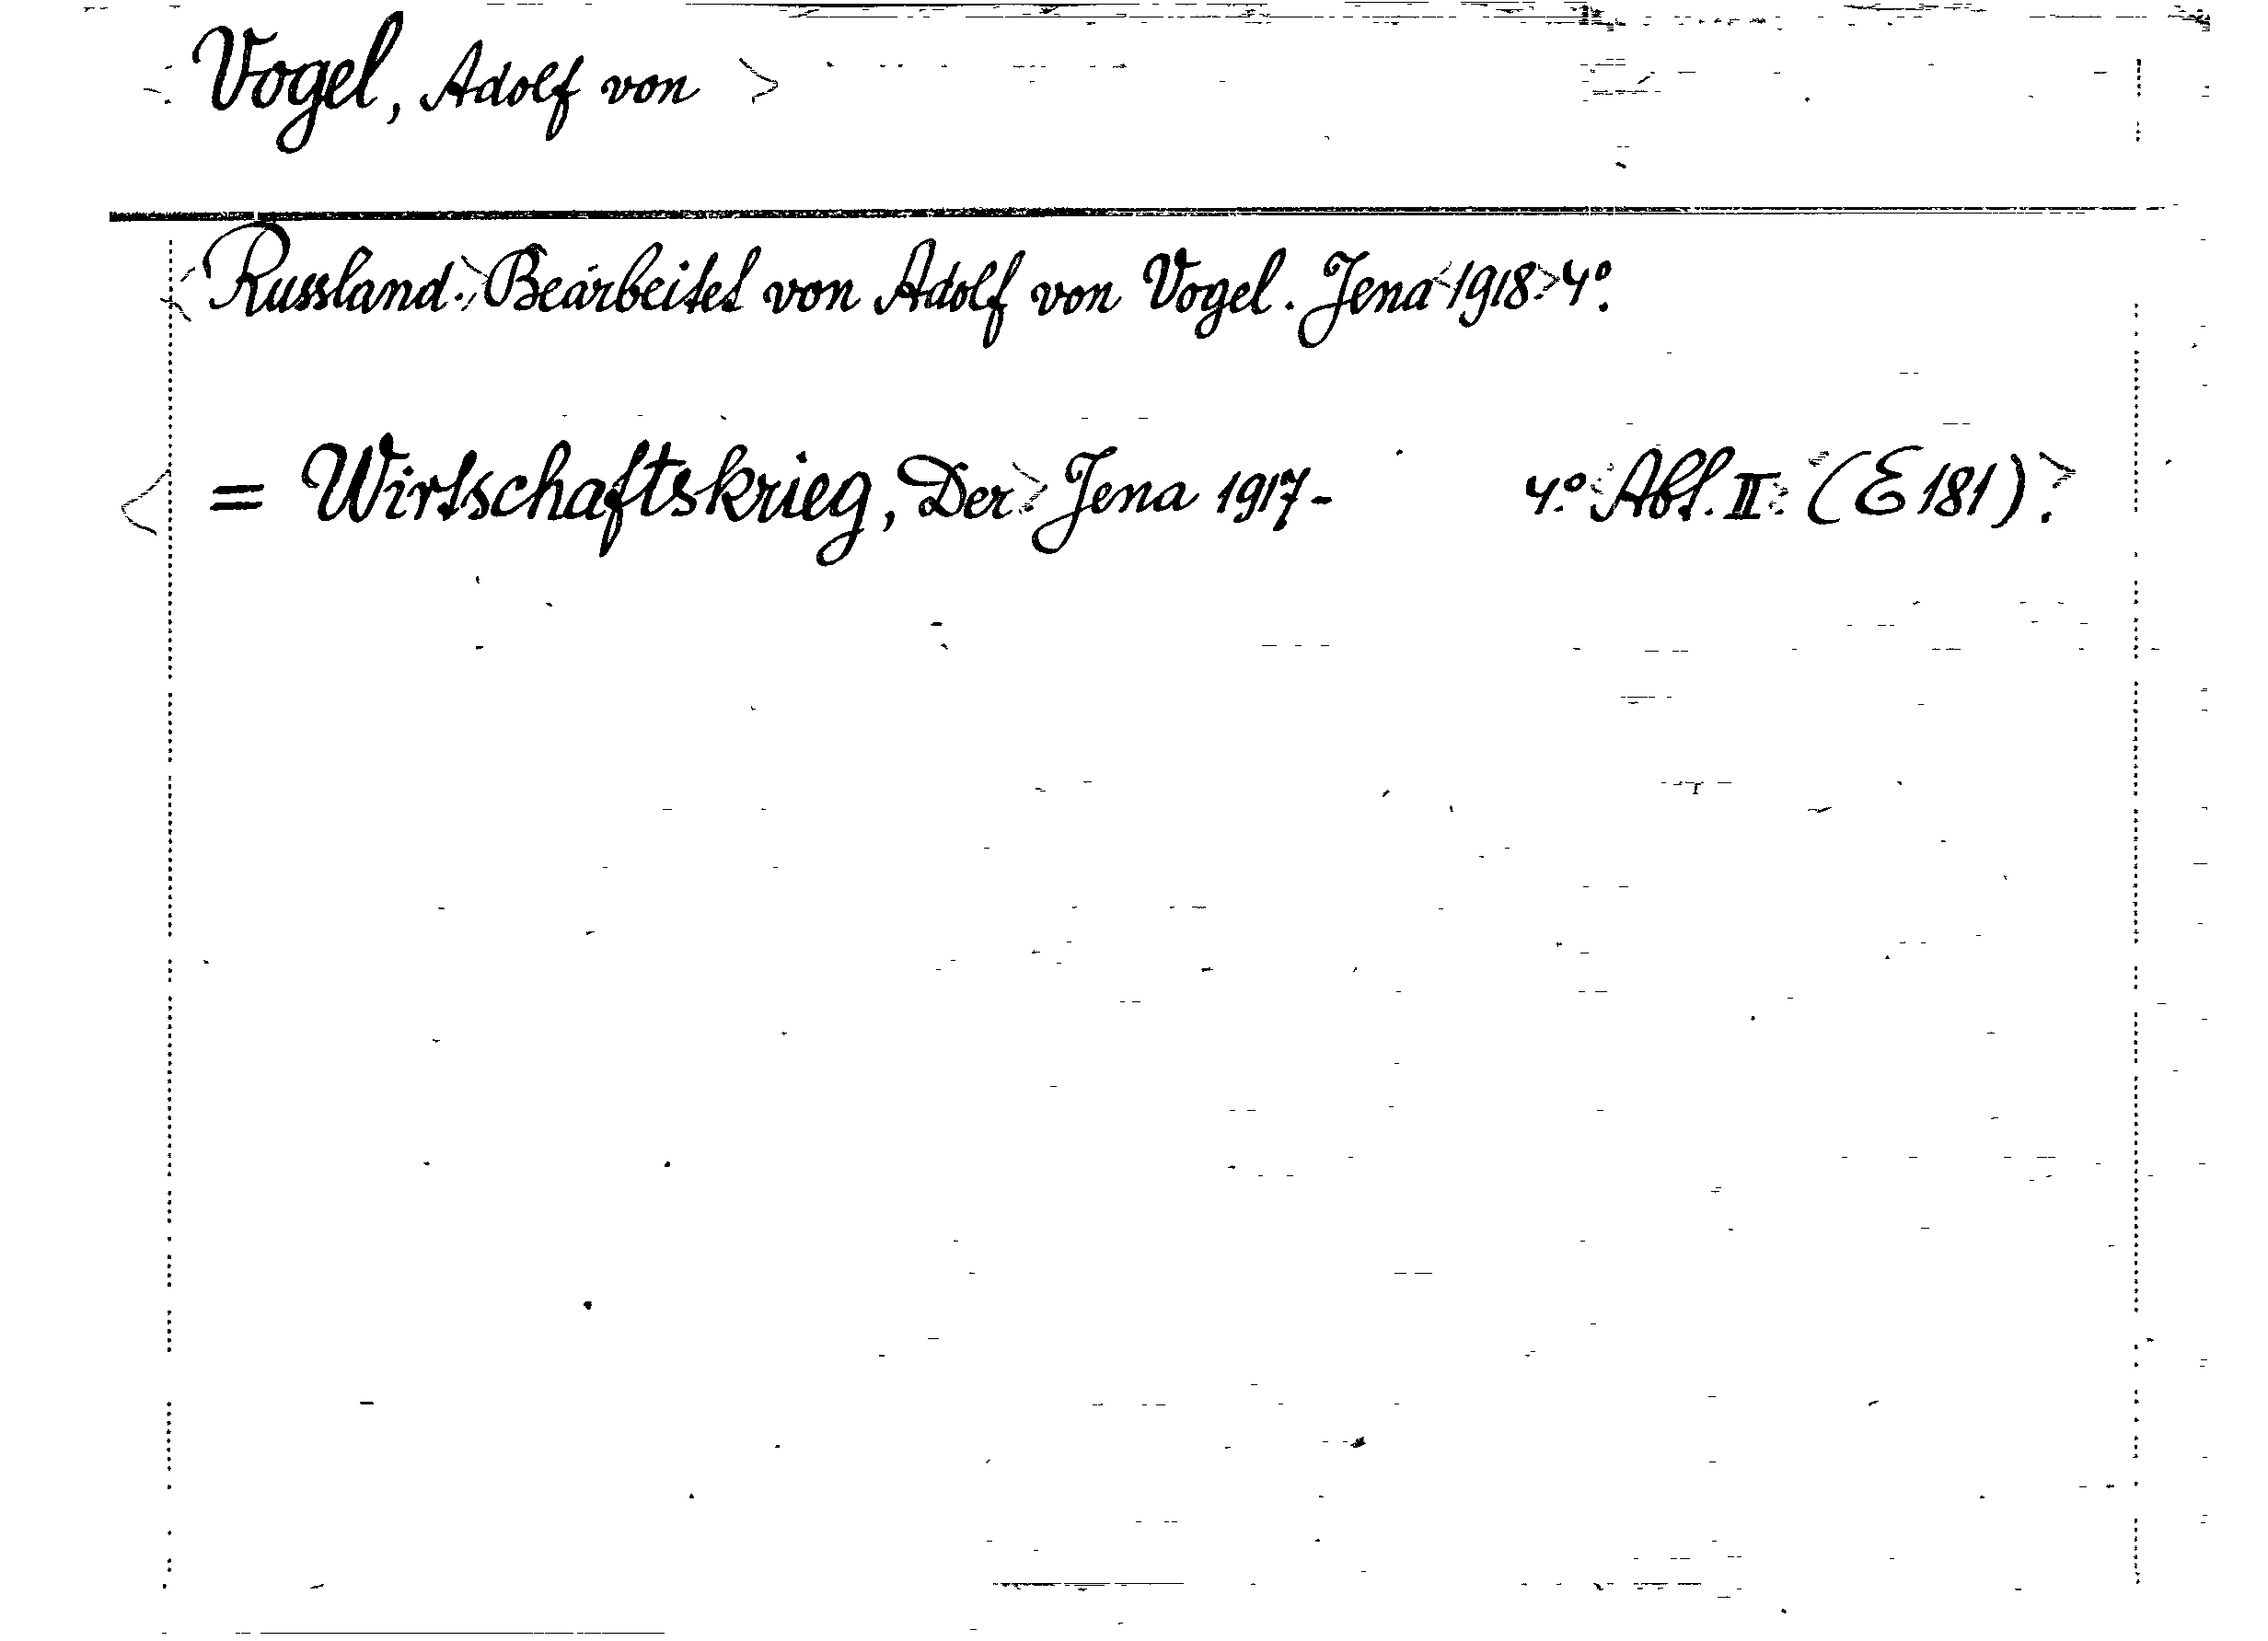 Vogel, Adolf von
Russland. Bearbeitet von Adolf von Vogel. Jena 1918. 4°.
= Wirtschaftskrieg, Der. Jena 1917- 4.° Abt. II. (E 181).